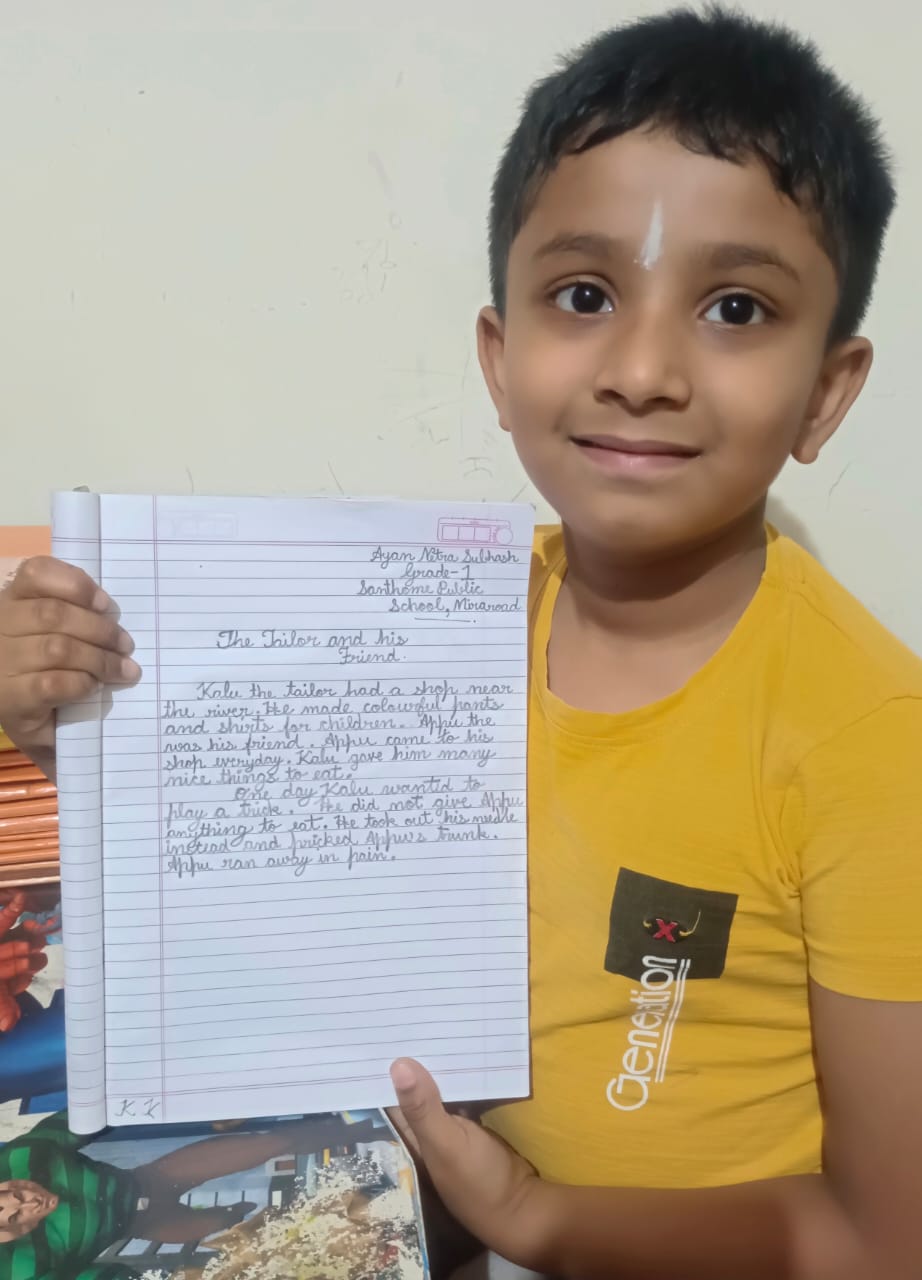 Ayan Netra Subhash
Grade-1
Santhome Public
School, Miraroad
The Tailor and his
Friend.
Kalu the tailor had a shop near
the river. He made colourful pants
and shirts for children. Appu the
was his friend. Appu came to his
shop everyday. Kalu gave him many
nice things to eat.
One day Kalu wanted to
play a trick. He did not give Appu
anything to eat. He took out his needle
instead and pricked Appu's trunk.
Appu ran away in pain.
K K
X
Generation